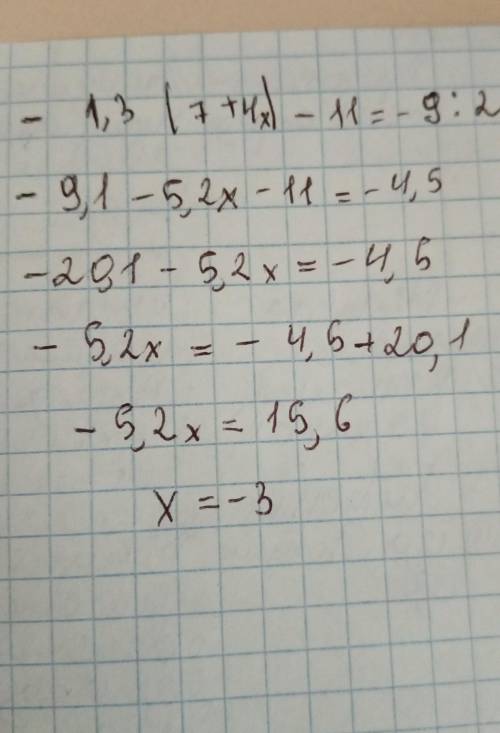 - 1,3 (7+4x) - 11 = - 9 : 2
- 9,1 - 5,2x - 11 = - 4,5
- 20,1 - 5,2x = - 4,5
- 5,2x = - 4,5 + 20,1
- 5,2x = 15,6
x = - 3